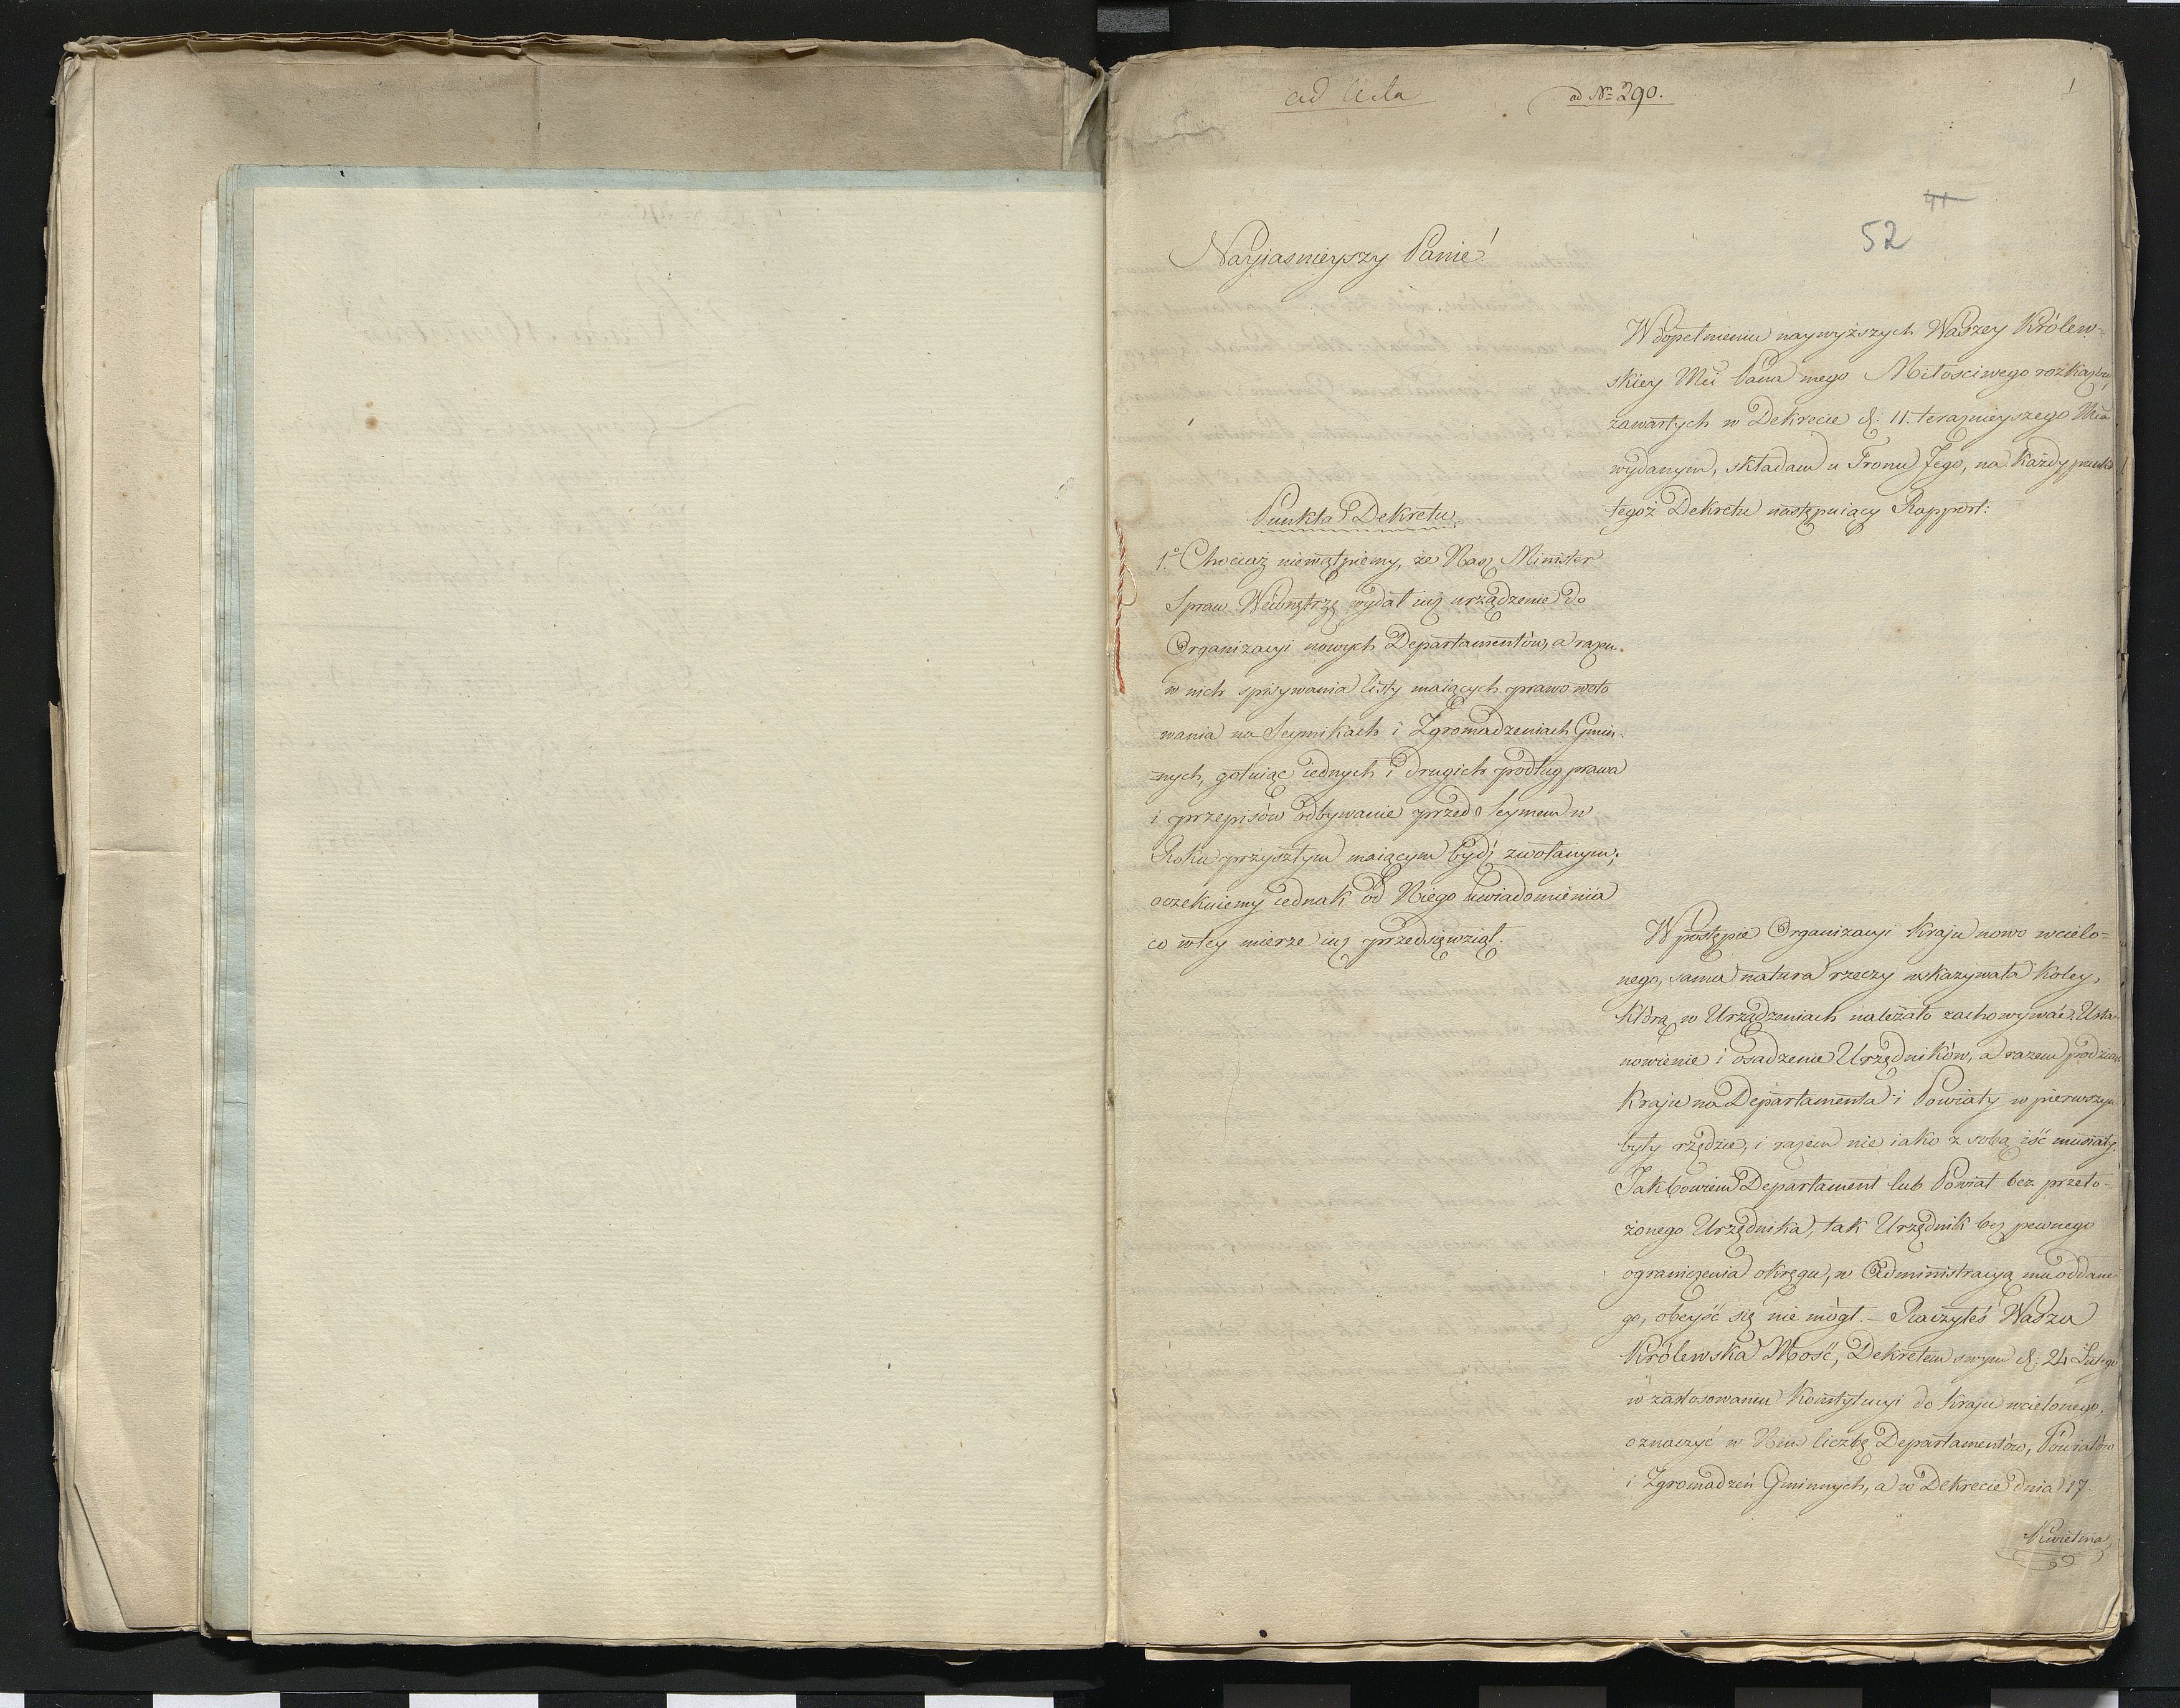 ad Acta
ad Nr 290.
1
41
52
Nayiasnieyszy Panie!
W dopełnieniu naywyższych Waszey Królew=
skiey Mci Pana mego Miłosciwego rozkazów,
zawartych w Dekrecie d: 11. teraznieyszego Mca
wydanym, składam u Tronu Jego, na każdy punkt
tegoż Dekretu następuiący Rapport:
Punkta Dekretu
1.° Chociaż niewątpiemy, że Nasz Minister
Spraw Wewnętrz: wydał iuż urządzenie do
Organizacyi nowych Departamentów, a razem
w nich spisywania listy maiących prawo woto
wania na Seymikach i Zgromadzeniach Gmin-
nych, gotuiąc iednych i drugich podług prawa
i przepisów odbywanie przed Seymem w
Roku przyszłym maiącym bydź zwołanym;
oczekuiemy iednak od Niego uwiadomienia
co w tey mierze iuż przedsięwziął.
W postępie Organizacyi Kraju nowo wcielo=
nego, sama natura rzeczy wskazywała koley,
którą w Urządzeniach należało zachowywać. Usta-
nowienie i osadzenie Urzędników, a razem podział
Kraju na Departamenta i Powiaty w pierwszym
były rzędzie, i razem nie iako z sobą iść musiały.
Jak bowiem Departament lub Powiat bez przeło=
żonego Urzędnika, tak Urzędnik bez pewnego
ograniczenia okręgu, w Administracyą mu oddane
go, obeyść się nie mógł. – Raczyłeś Wasza
Królewska Mość, Dekretem swym d: 24 Lutego
w zastosowaniu Konstytucyi do kraju wcielonego,
oznaczyć w Nim liczbę Departamentów, Powiatów
i Zgromadzeń Gminnych, a w Dekrecie dnia 17
Kwietnia,